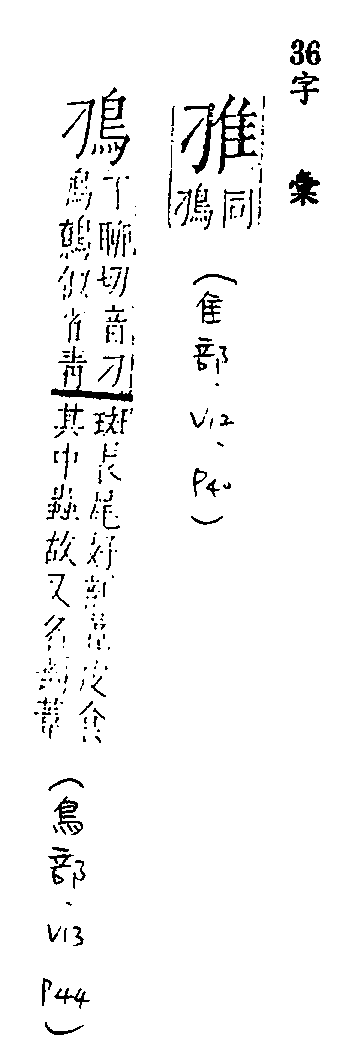 36字彙
同
鳭
(隹部、V12、P40)
鳭
丁聊切音刁
鳭鷯似雀青
斑長尾好剖葦皮食
其中蟲故又名剖葦
(鳥部、V13 P44)